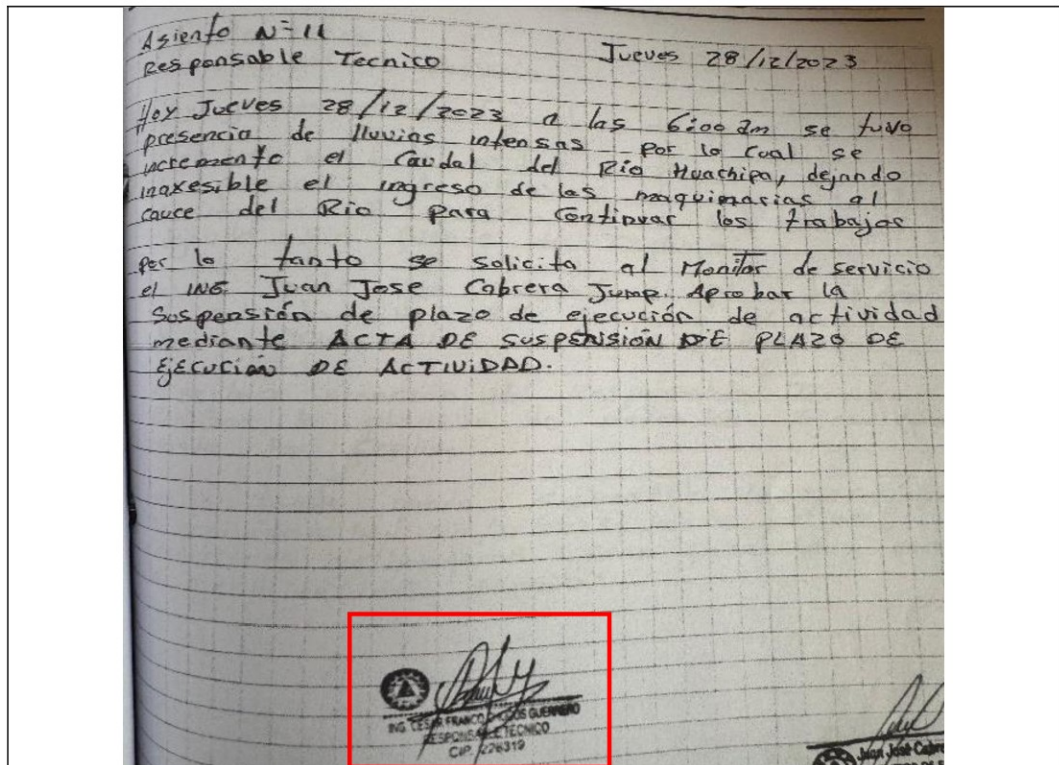 Asiento N=11
Responsable Tecnico Jueves 28/12/2023
Hoy Jueves 28/12/2023 a las 6:00 am se tuvo
presencia de lluvias intensas por lo cual se
incremento el Caudal del Rio Huachipa, dejando
inaxesible el ingreso de las maquinarias al
cauce del Rio para Continuar los trabajos
por lo tanto se solicita al Monitor de servicio
el ING. Juan Jose Cabrera Jump. Aprobar la
Suspensión de plazo de ejecución de actividad
mediante ACTA DE SUSPENSIÓN DE PLAZO DE
EJECUCIÓN DE ACTIVIDAD.
ING. CESAR FRANCO GUERRERO
RESPONSABLE TECNICO
CIP. 226319
Juan José Cabre